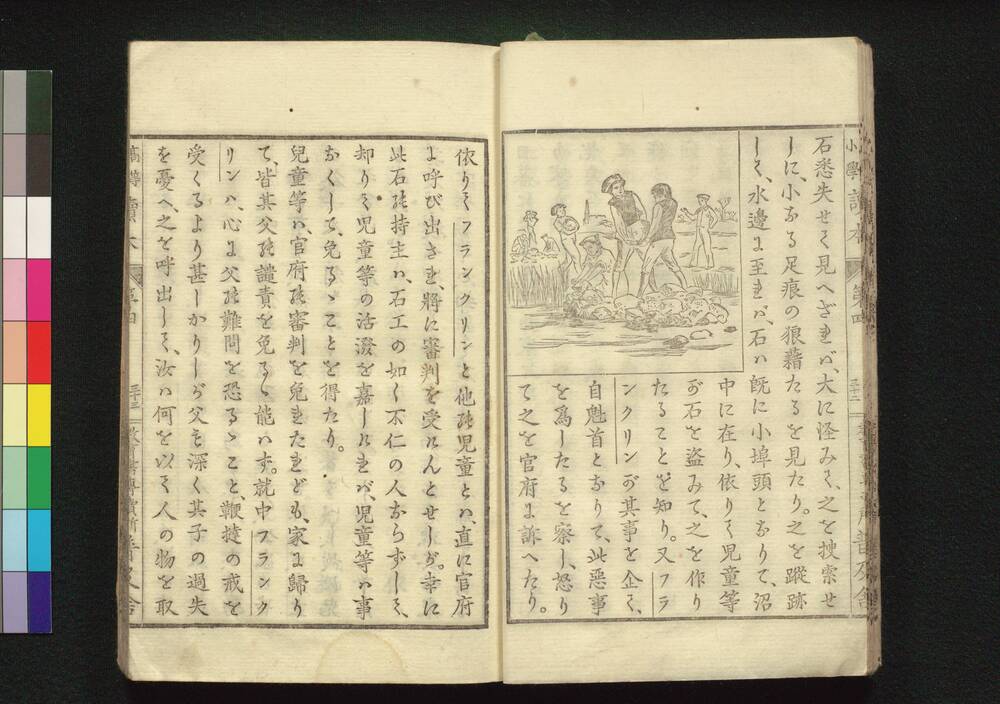 石悉失せて見へざれバ、大に怪みて、之を捜索せ
しに、小なる足痕の狼藉たるを見たり。之を蹤跡
して、水邊に至れバ、石ハ既に小埠頭となりて、沼
中に在り、依りて児童等
が石を盗みて、之を作り
たることを知り。又フラ
ンクリンが其事を企て、
自魁首となりて、此悪事
を為したるを察し、怒り
て之を官府に訴へたり。
小學讀本
第四
三十二
依りてフランクリンと他の児童とハ、直に官府
に呼び出され、將に審判を受けんとせしが。幸に
此石の持主ハ、石工の如く不仁の人ならずして、
却りて児童等の活潑を嘉しければ、児童等ハ事
なくして、免るゝことを得たり。
兒童等ハ、官府の審判を免れたれども、家に歸り
て、皆其父の譴責を免るゝ能ハず。就中フランク
リンハ、心に父の難問を恐るゝこと、鞭撻の戒を
受くるより甚しかりしが父も深く其子の過失
を憂へ、之を呼出して、汝ハ何を以て人の物を取
三十三